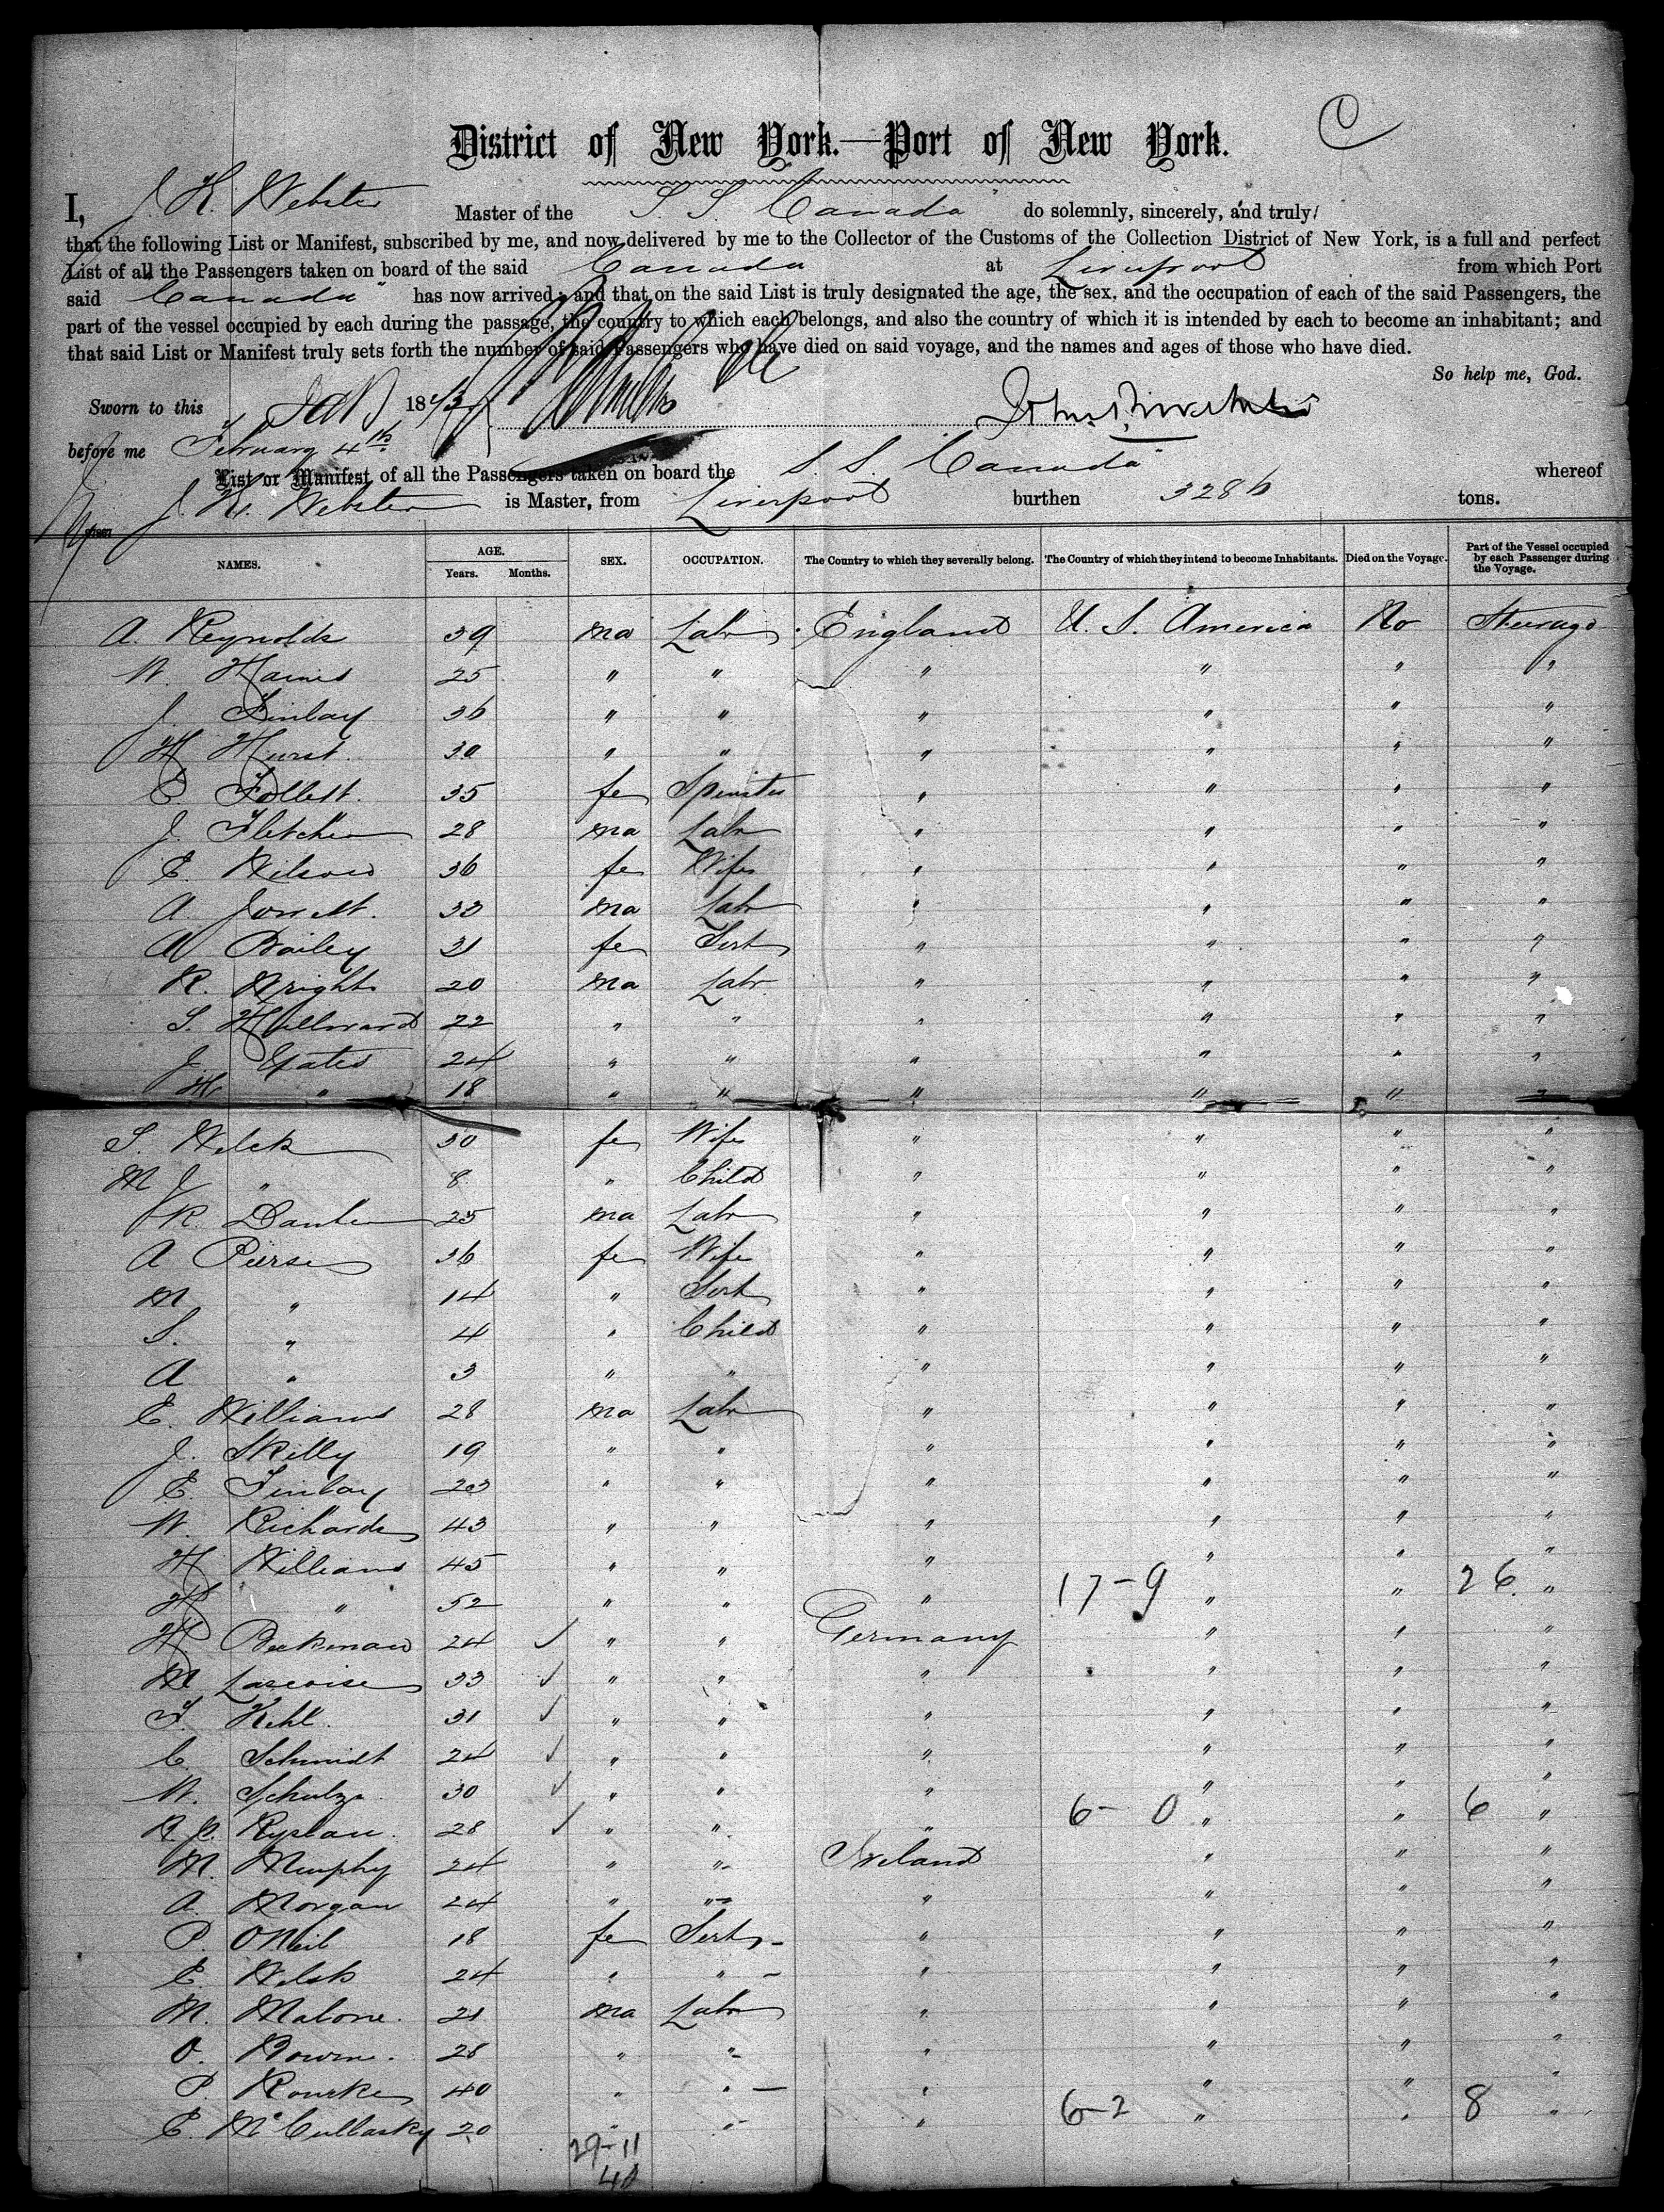 C
District of New York.—Port of New York.
I, J. H. Webster Master of the S. S. Canada" do solemnly, sincerely, and truly
that the following List or Manifest, subscribed by me, and now delivered by me to the Collector of the Customs of the Collection District of New York, is a full and perfect
List of all the Passengers taken on board of the said Canada at Liverpool from which Port
said Canada" has now arrived; and that on the said List is truly designated the age, the sex, and the occupation of each of the said Passengers, the
part of the vessel occupied by each during the passage, the country to which each belongs, and also the country of which it is intended by each to become an inhabitant; and
that said List or Manifest truly sets forth the number of said Passengers who have died on said voyage, and the names and ages of those who have died.
So help me, God.
Sworn to this 18
before me February 4th
List or Manifest of all the Passengers taken on board the S. S. Canada" whereof
J. H. Webster is Master, from Liverpool burthen 3286 tons.
NAMES. AGE. Years. Months. SEX. OCCUPATION. The Country to which they severally belong. The Country of which they intend to become Inhabitants. Died on the Voyage. Part of the Vessel occupied by each Passenger during the Voyage.
A. Reynolds 39 ma Labr England U. S. America No Steerage
W. Haines 25 " " " " " "
J. Finlay 36 " " " " " "
H Hurst. 30 " " " " " "
E Follett. 35 fe Spinster " " " "
J. Fletcher 28 ma Labr " " " "
E. Wilson 36 fe Wife " " " "
A. Jowett. 33 ma Labr " " " "
A Bailey 31 fe Servt " " " "
R. Wright 20 ma Labr. " " " "
S. Hillward 22 " " " " " "
J. Yates 24 " " " " " "
H " 18 " " " " " "
S. Welch 30 fe Wife " " " "
M J " 8 " Child " " " "
R. 25 ma Labr " " " "
A Pierse 36 fe Wife " " " "
M " 14 " Servt " " " "
S. " 4 " Child " " " "
A " 3 " " " " " "
E. Williams 28 ma Labr " " " "
J. Skelly 19 " " " " " "
E. Finlay 23 " " " " " "
W. Richards 43 " " " " " "
H Williams 45 " " " " " "
H " 52 " " " 17-9 " " 26 "
H Beekman 24 ✓ " " Germany " " "
M Lascoise 33 ✓ " " " " " "
F. Kehl. 31 ✓ " " " " " "
C. Schmidt 24 ✓ " " " " " "
W. Schulze 30 ✓ " " " " " "
28 ✓ " " " 6-0 " " 6 "
M. Murphy 24 " " Ireland " " "
A. Morgan 24 " " " " " "
P. ONeil 18 fe Servt " " " "
E. Welsh 24 " " " " " "
M. Malone. 21 ma Labr " " " "
O. Bowne. 28 " " " " " "
P. Rourke 40 " " " " " "
E. McCullasky 20 " " " 6-2 " " 8 "
29-11
40